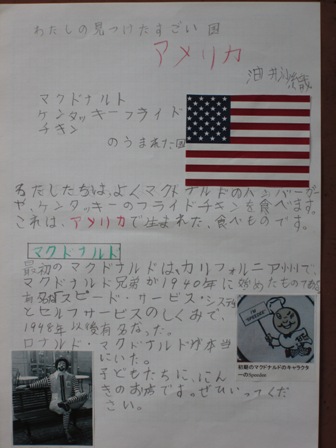 わたしの見つけたすごい国
アメリカ
マクドナルト
ケンタッキーフライド
チキン
のうまれた国
わたしたちは、よくマクドナルドのハンバーガー
や、ケンタッキーのフライドチキンを食べます。
これは、アメリカで生まれた、食べものです。
マクドナルド
最初のマクドナルドは、カリフォルニア州で、
マクドナルド兄弟が1940年に始めたものである
有名なスピード・サービス・システム
とセルフサービスのしくみで、
1948年以後有名なった。
ロナルド・マクドナルドが本当
にいた。
子どもたちに、にん
きのお店です。ぜひいってくだ
さい。
初期のマクドナルドのキャラクタ
ーのSpeedee